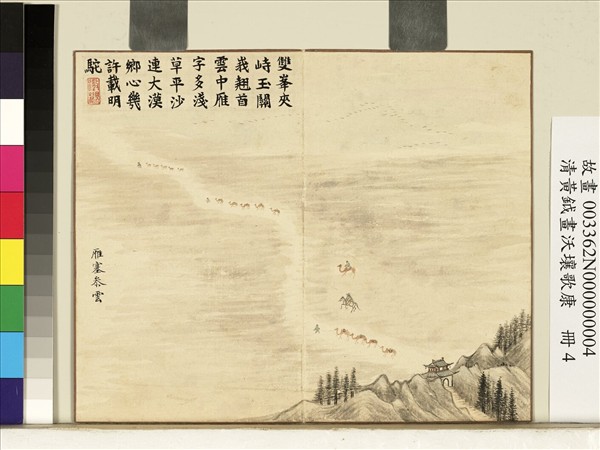 雙峯夾
峙玉關
峩翹首
雲中雁
字多淺
草平沙
連大漠
鄉心幾
許載明
駝
雁塞叅雲
故畫 003362N000000004
清黃鉞畫沃壤歌康 冊 4